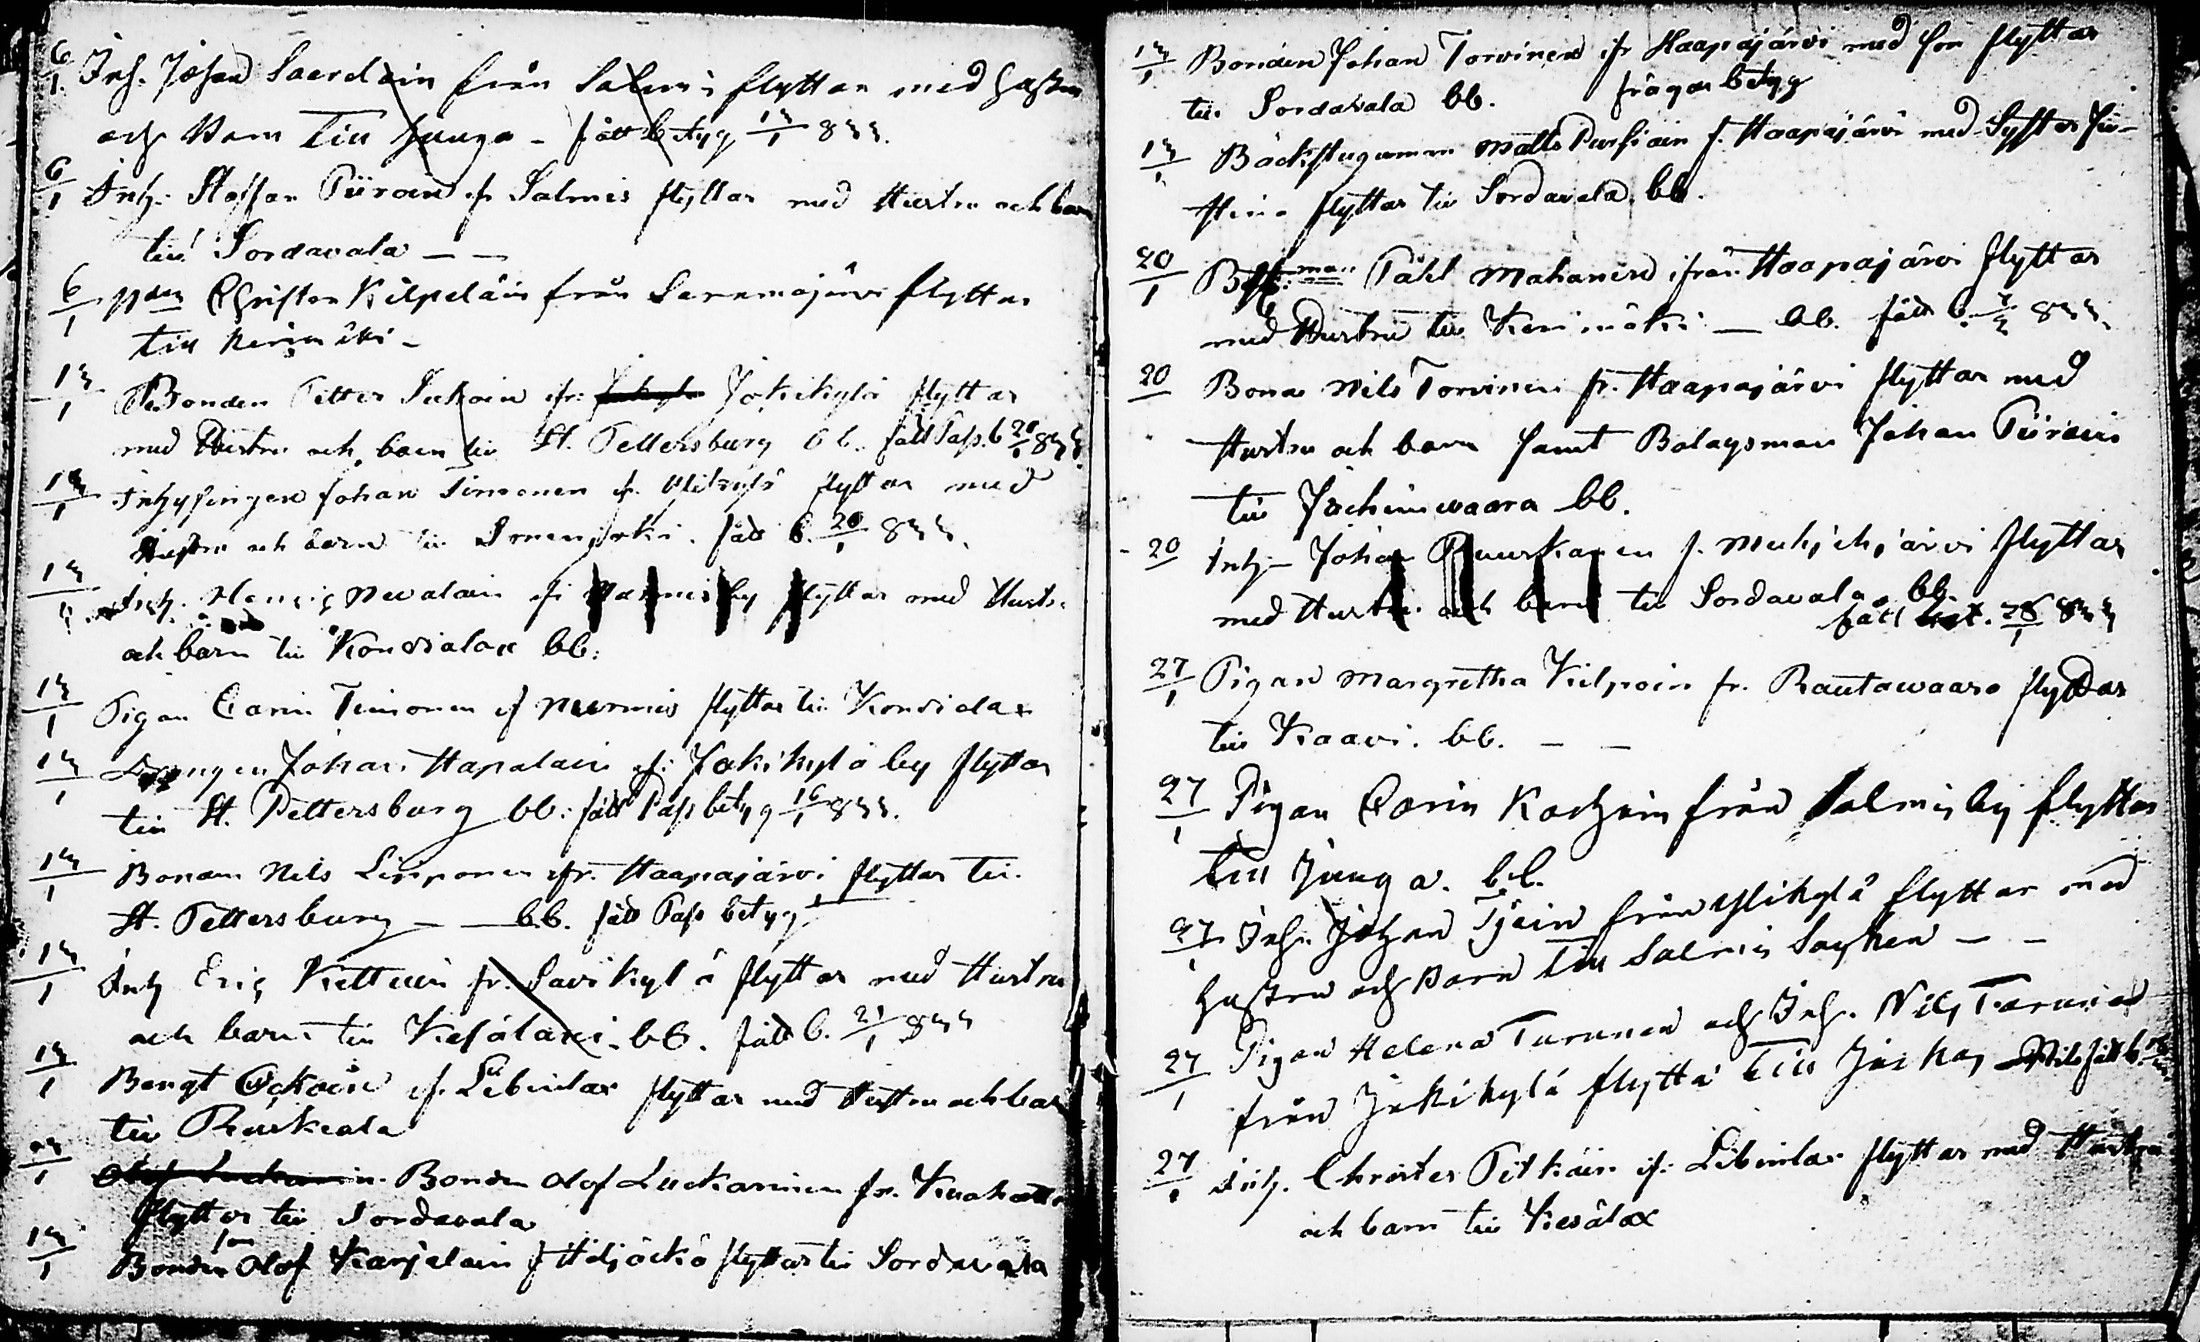 6/1 Inh. Johan Saarelain från Salmis flyttar med hustru
och Barn till Juuga - fått betyg 13/1 833.
6/1 Inh. Staffan Piirain fr Salmis flyttar med Hustru och barn
till Sordavala - -
6/1 Christer Kilpeläin från Saramojärvi flyttar
till Kerimäki -
13/1 Bonden Petter Sukain fr: Jokikylä flyttar
med Hustru och barn till St. Pettersburg bb. fått Pass. b 20/1 833.
13/1 Inhysingen Johan Simonen fr. Ylikylä flyttar med
Hustru och barn till fått b. 20/1 833.
13/1 Inh. Henric Nevalain fr Nurmis by flyttar med Hustru
och barn till Kondialax bb.
13/1 Pigan Carin Timonen fr Nurmis flyttar till Kondialax
13/1 Drengen Johan Hapalain fr: Jokikylä by flyttar
till St. Pettersburg bb: fått Pass betyg 16/1 833.
13/1 Bonden Nils Lipponen fr. Haapajärvi flyttar till
St. Pettersburg — bb. fått Pass betyg
13/1 Inh Eric Kettuin fr. Savikylä flyttar med Hustru
och barn till Kesälaxi. bb. fått b. 21/1 833
13/1 Bengt fr. Libinlax flyttar med Hustru och barn
till Ruskeala
13/1 Bonden Olof Luckarinen fr. Kuohatti
flyttar till Sordavala
13/1 Bonden son Olof Karjalain fr Höljäckä flyttar till Sordavala
13/1 Bonden Johan Torvinen fr Haapajärvi med son flyttar
till Sordavala bb. frågar betyg
13/1 Backstuguman Matts Pursiain f. Haapajärvi med Syster
stina flyttar till Sordavala. bb.
20/1 Påhl Mahanen ifrån Haapajärvi flyttar
med Hustru till Kerimäki — bb. fått b. 833.
20 Bond Nils Torvinen fr. Haapajärvi flyttar med
Hustru och barn samt Bolagsman Johan Piirain
till Jachimvaara bb.
20 Inh- Johan Puurkanen f. Muhjehjärvi flyttar
med Hustru och barn till Sordavala. bb.
fått 28/1 833
27/1 Pigan Margretha Kilpein fr. Rautawaara flyttar
till Kaavi. bb. - -
27/1 Pigan Carin från Salmis by flyttar
till Juuga. bb.
27/1 Inh. Johan från Ylikylä flyttar med
hustru och Barn till Salmis Socken - -
27/1 Pigan Helena Turunen och Inh. Nils Turunen
från Jokikylä flytta till Nils fått b.
27/1 Inh. Christer Pitkäin fr: Libinlax flyttar med Hustru
och barn till Kesälax